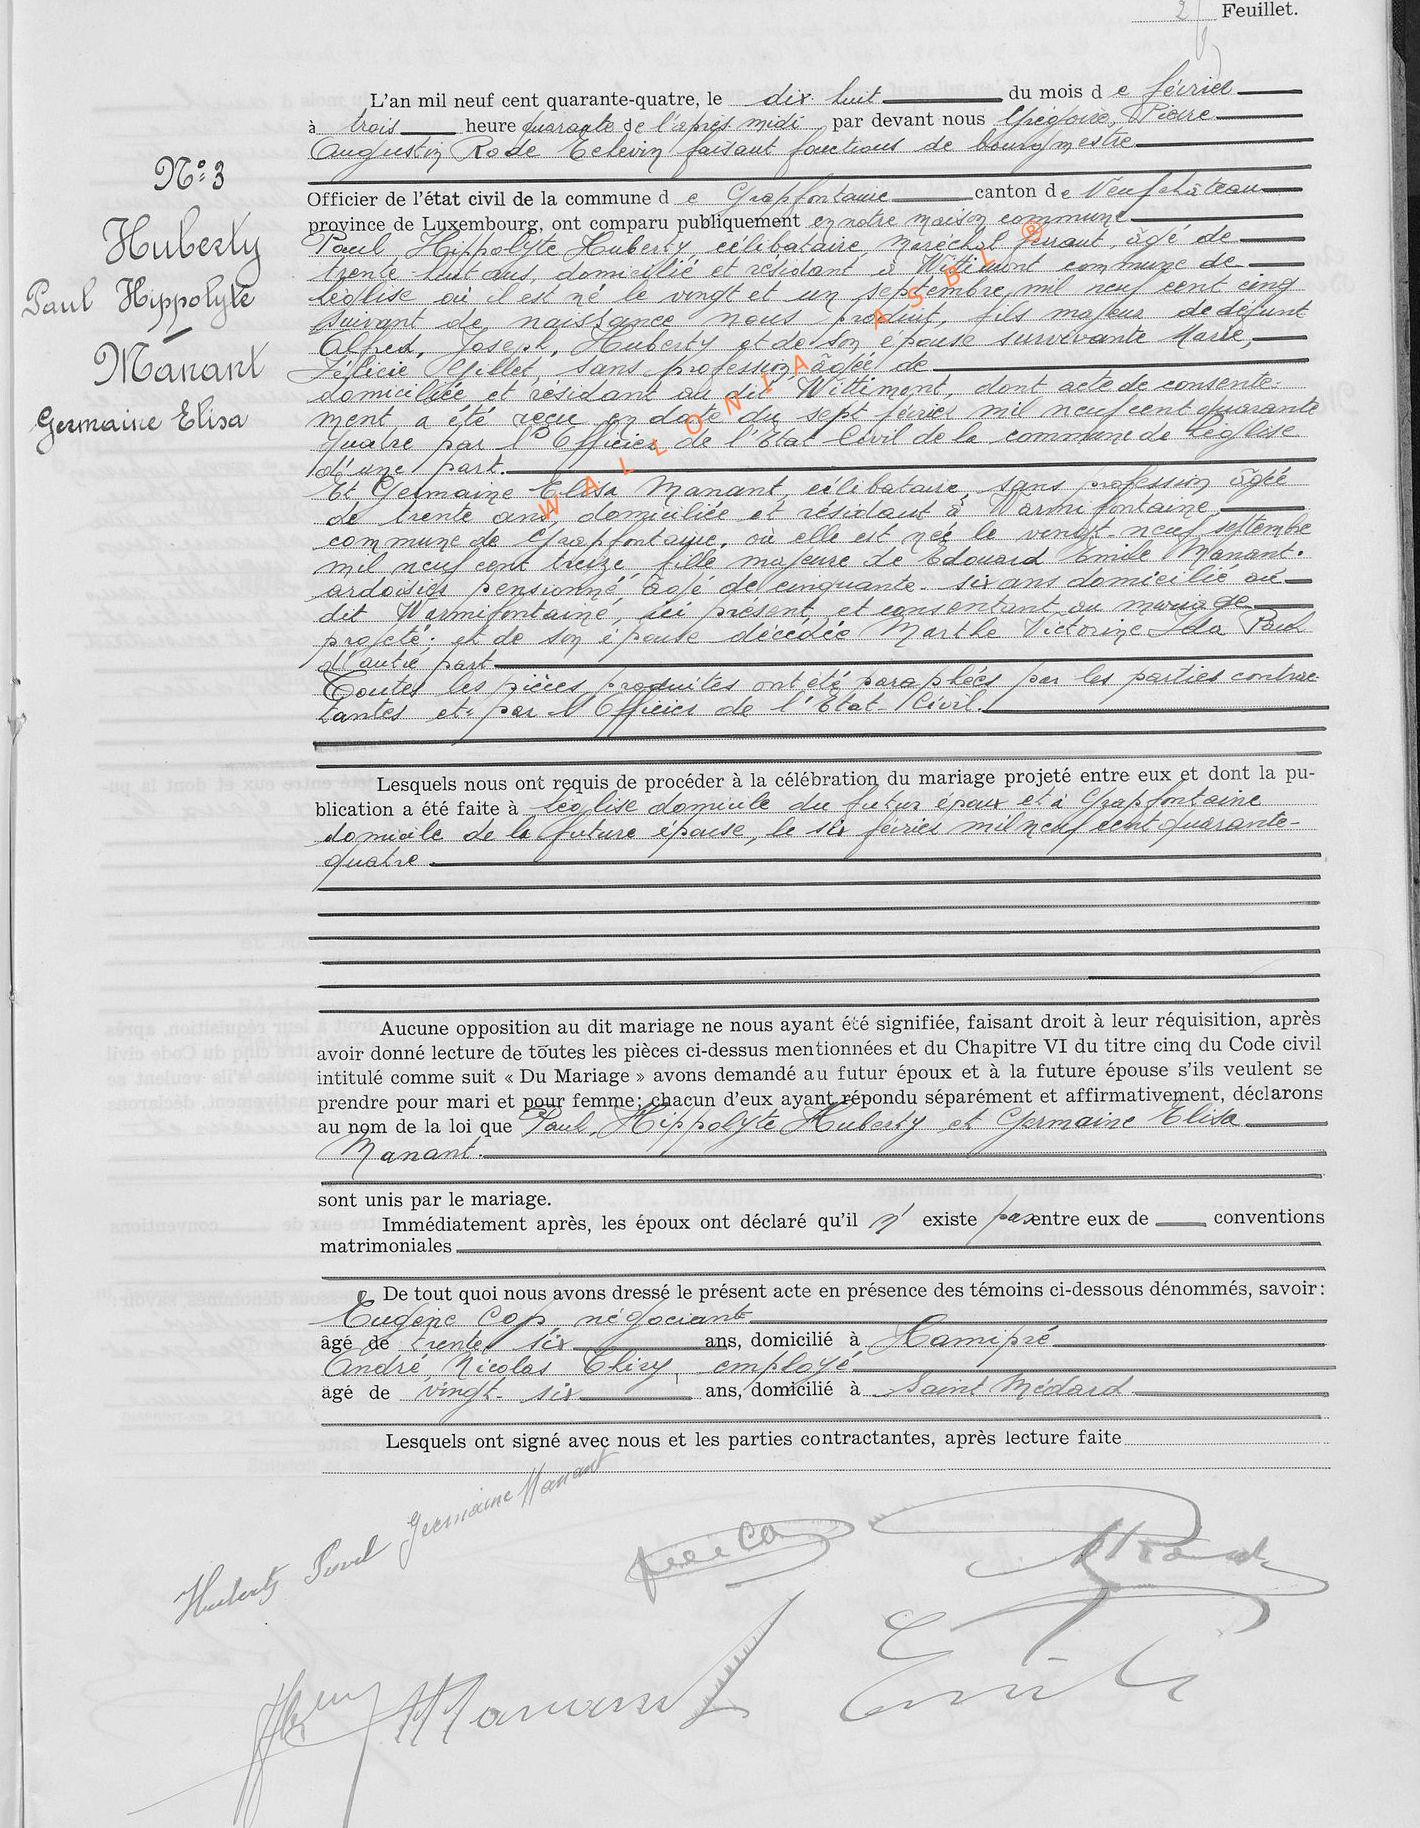 2 Feuillet.
L'an mil neuf cent quarante-quatre, le dix huit du mois d e février
à trois heure quarante de l'après midi par devant nous Grégoire, Pierre
Augustin Rode Echevin faisant fonctions de bourgmestre
Officier de l'état civil de la commune d e Grapfontaine canton de Neufchâteau
province de Luxembourg, ont comparu publiquement en notre maison commune
Paul, Hippolyte Huberty, célibataire, maréchal ferrant, âgé de
trente-huit ans, domicilié et résidant à Wittimont commune de
Léglise où il est né le vingt et un septembre mil neuf cent cinq
suivant de naissance nous produit, fils majeur de défunt
Alfred, Joseph, Huberty et de son épouse survivante Marie,
Félicie Gillet, sans profession, âgée de
domiciliée et résidant au dit Wittimont, dont acte de consente-
ment a été reçu en date du sept février mil neuf cent quarante
quatre par l'Officier de l'Etat Civil de la commune de Léglise
d'une part.
Et Germaine Elisa Manant, célibataire, sans profession âgée
de trente ans, domiciliée et résidant à Warmifontaine,
commune de Grapfontaine, où elle est née le vingt-neuf septembre
mil neuf cent treize, fille majeure de Edouard Emile Manant.
ardoisier pensionné, âgé de cinquante-six ans domicilié au
dit Warmifontaine, ici présent, et consentant au mariage
projeté; et de son épouse décédée Marthe Victorine Ida Paul
d'autre part
Toutes les pièces produites ont été paraphées par les parties contrac-
tantes et par l'Officier de l'Etat Civil.
Lesquels nous ont requis de procéder à la célébration du mariage projeté entre eux et dont la pu-
blication a été faite à Léglise domicile du futur époux et à Grapfontaine
domicile de la future épouse, le six février mil neuf cent quarante-
quatre
Aucune opposition au dit mariage ne nous ayant été signifiée, faisant droit à leur réquisition, après
avoir donné lecture de toutes les pièces ci-dessus mentionnées et du Chapitre VI du titre cinq du Code civil
intitulé comme suit « Du Mariage » avons demandé au futur époux et à la future épouse s'ils veulent se
prendre pour mari et pour femme; chacun d'eux ayant répondu séparément et affirmativement, déclarons
au nom de la loi que Paul, Hippolyte Huberty et Germaine Elisa
Manant.
sont unis par le mariage.
Immédiatement après, les époux ont déclaré qu'il n' existe pas entre eux de conventions
matrimoniales
De tout quoi nous avons dressé le présent acte en présence des témoins ci-dessous dénommés, savoir:
Eugène Cop, négociant
âgé de trente six ans, domicilié à Hamipré
André, Nicolas Thiry, employé
âgé de vingt-six ans, domicilié à Saint Médard
Lesquels ont signé avec nous et les parties contractantes, après lecture faite
N° 3
Huberty
Paul Hippolyte
Manant
Germaine Elisa
WALLONIA ASBL ®
Huberty Paul Germaine Manant
Manant